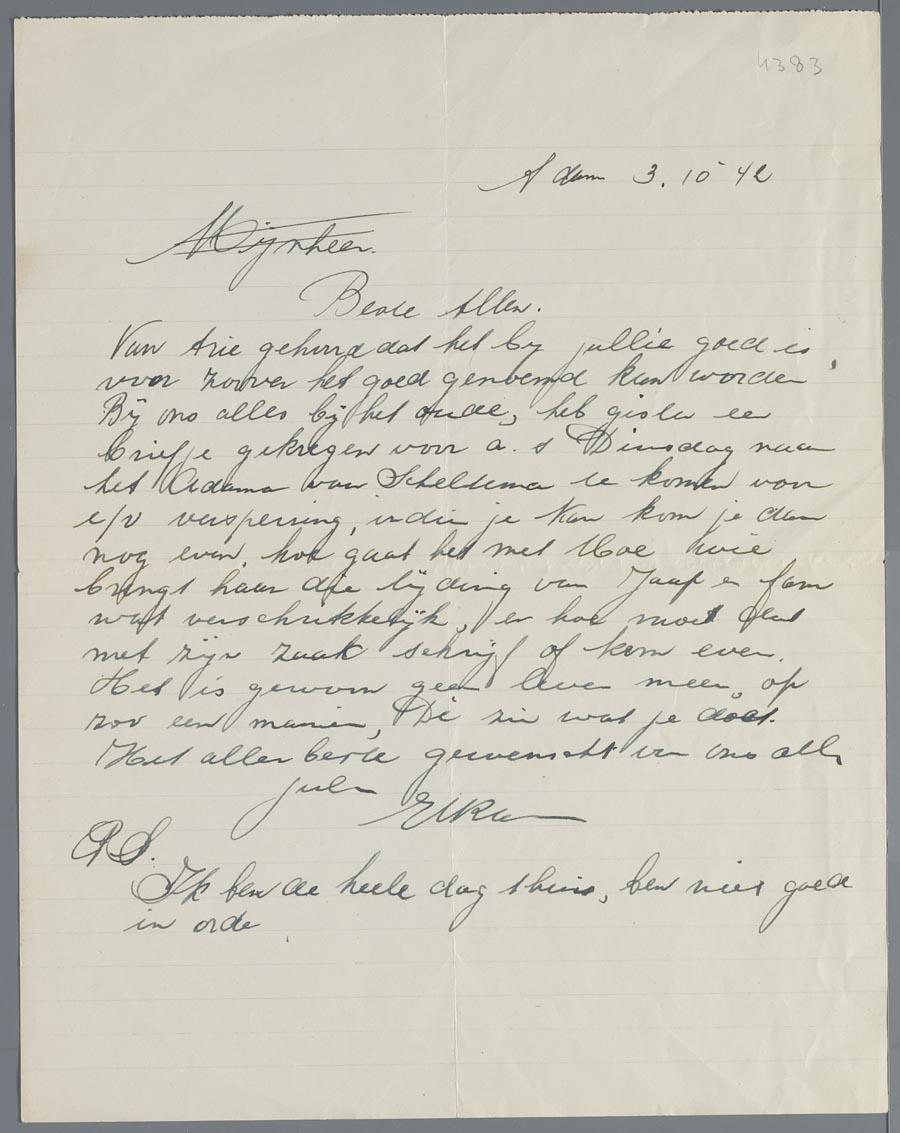 4383
A dam 3. 10 42
Mijnheer.
Beste Allen.
Van Arie gehoord dat het by jullie goed is
voor zoover het goed genoemd kan worden
Bij ons alles bij het oude, heb gister een
briefje gekregen voor a. s Dinsdag naar
het Adama van Scheltema te komen voor
e/v versperring, indien je kan kom je dan
nog even, hoe gaat het met Moe wie
brengt haar die tijding van Jaap en fam
wat verschrikkelijk, en hoe moet dat
met zijn zaak schrijf of kom even.
Het is gewoon geen leven meer, op
zoo een manier, zie wat je doet.
Het aller beste gewenscht van ons alle
jullie
Elka
PS.
Ik ben de heele dag thuis, ben niet goed
in orde